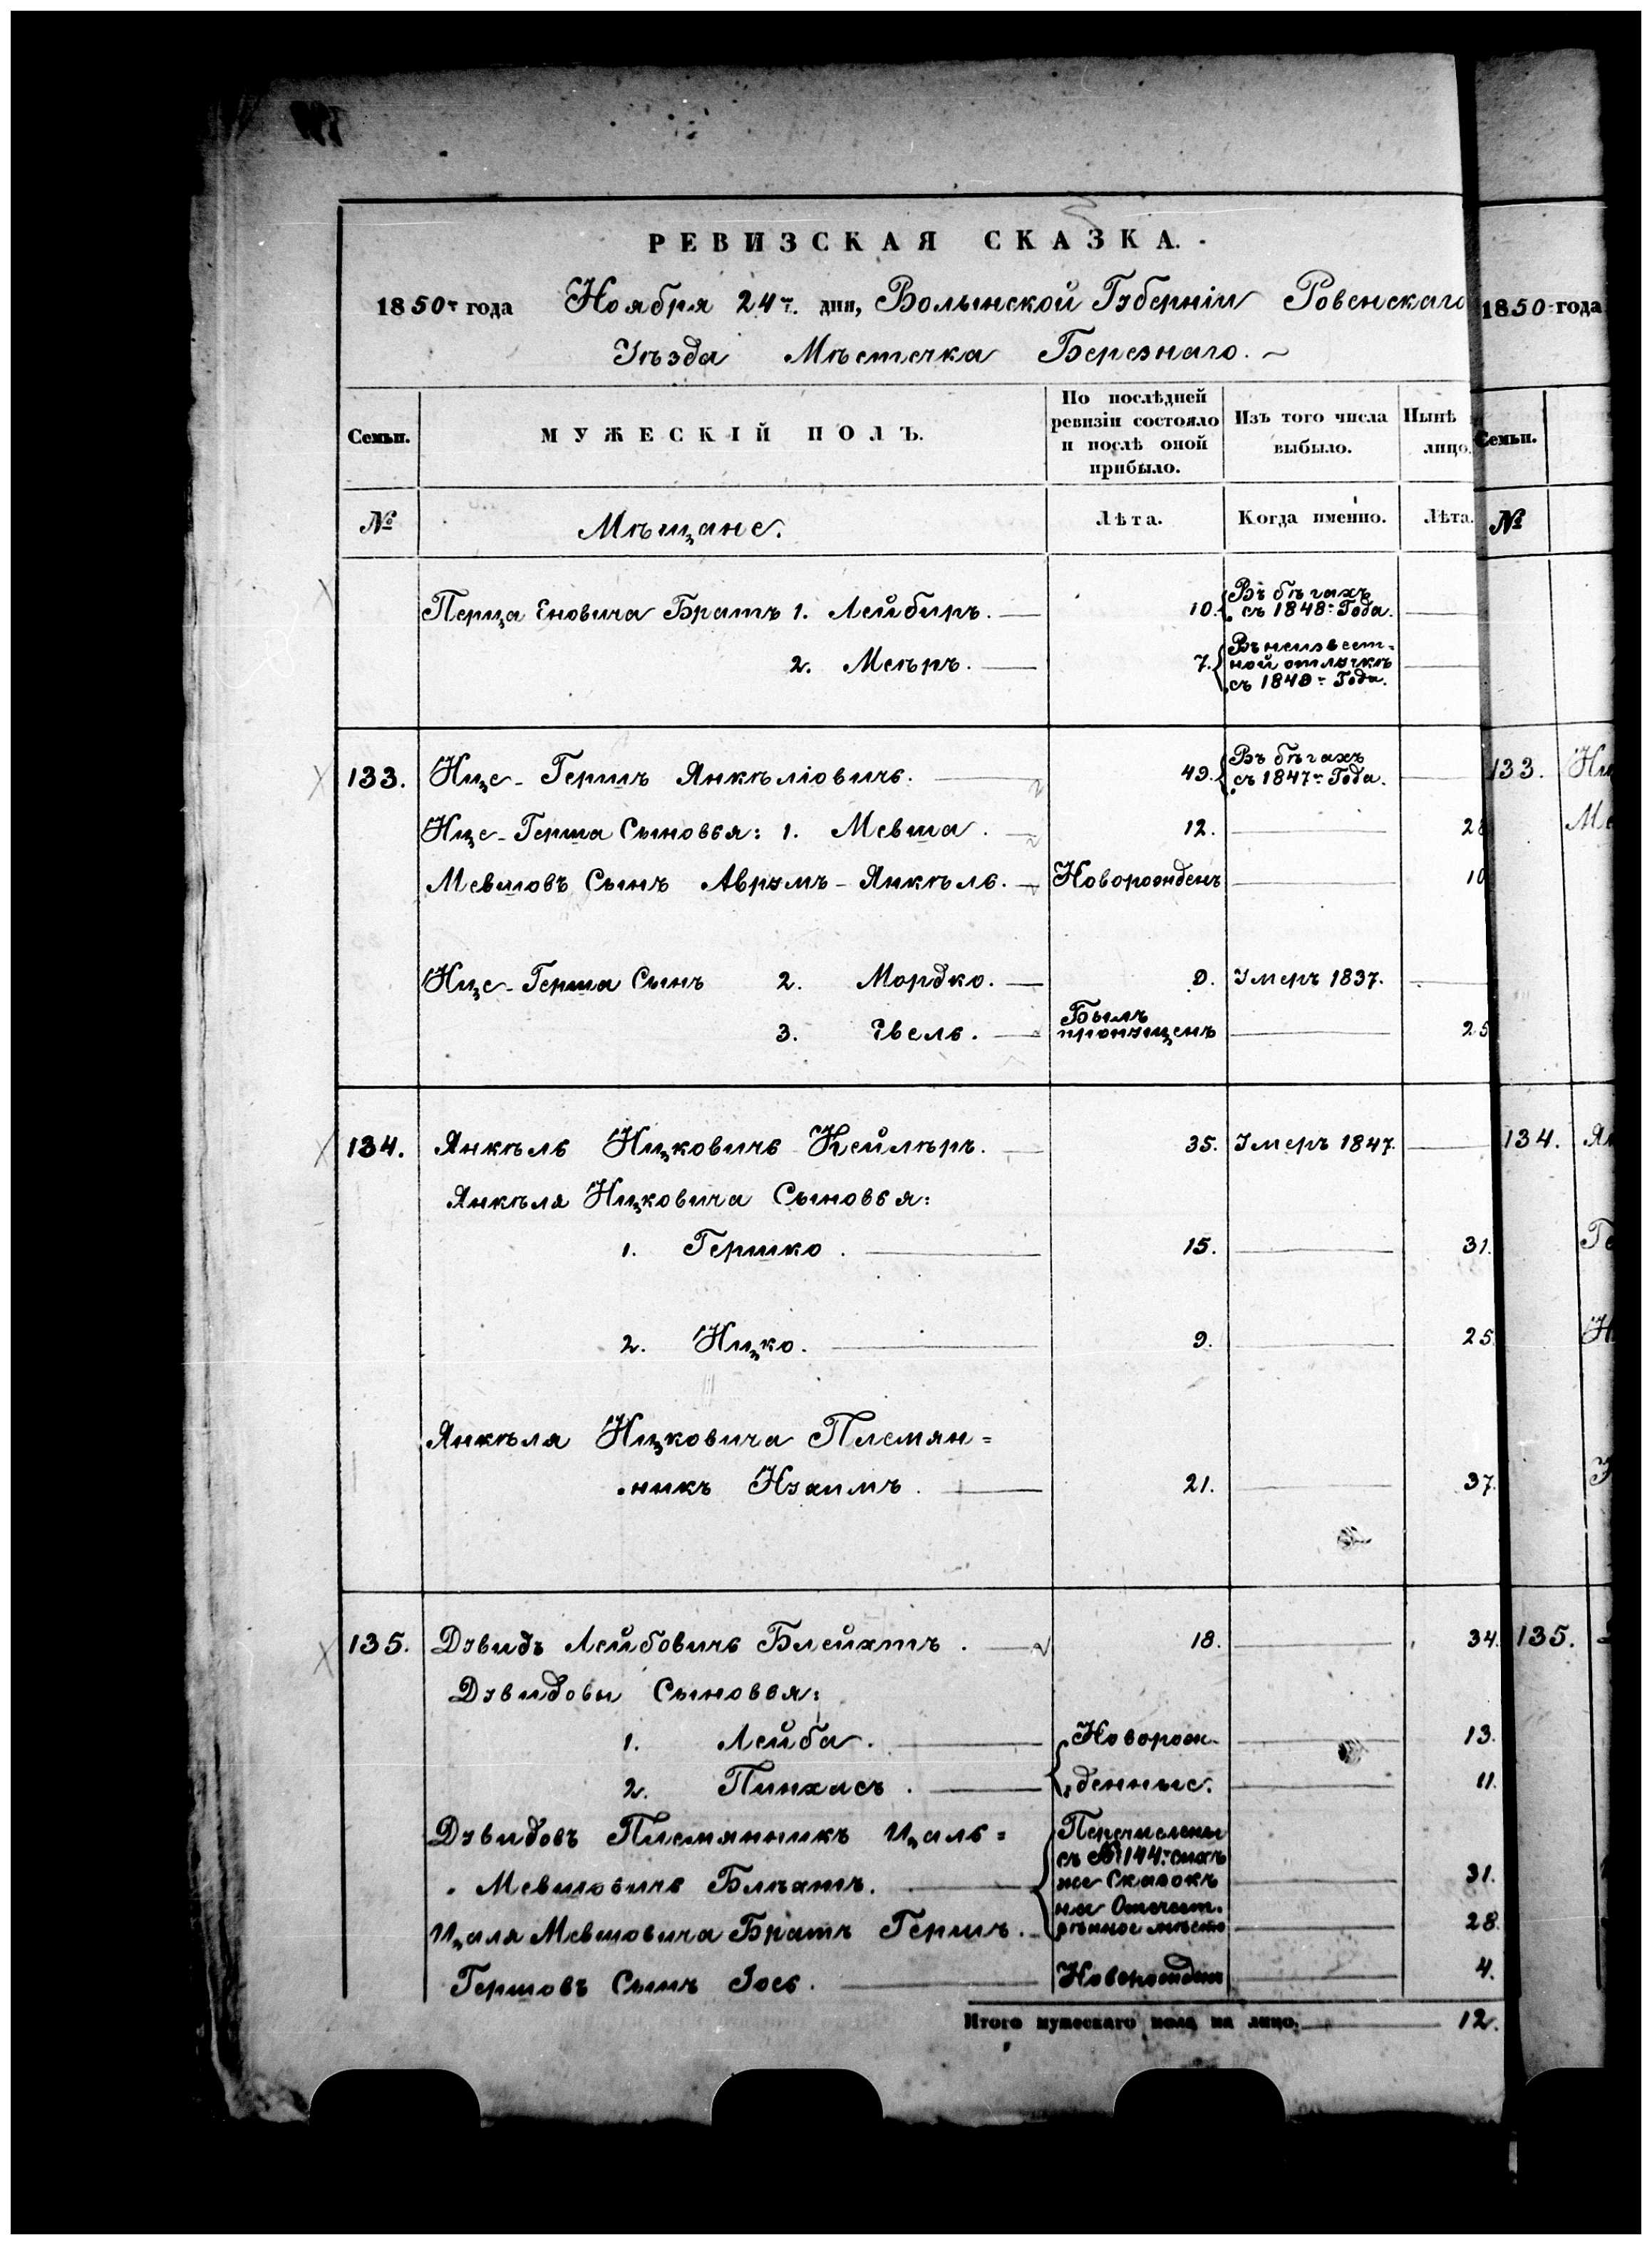 РЕВИЗСКАЯ СКАЗКА.
1850 г года Ноября 24 г. дня, Волынской Губерніи Ровенскаго
Уѣзда Мѣстечка Березнаго.
Семьи.
МУЖЕСКІЙ ПОЛЪ.
По послѣдней ревизіи состояло и послѣ оной прибыло.
Изъ того числа выбыло.
Нынѣ лицо.
№
Мѣщане.
Лѣта.
Когда именно.
Лѣта.
Перца Еновича Братъ 1. Лейбиръ. 10. Въ бѣгахъ съ 1848 Года.
2. Меѣръ. 7. Въ неизвест=
ной отлучкѣ
съ 1840 Года.
133. Ицс-Гершъ Янкѣліовичь. 49. Въ бѣгахъ
съ 1847 Года.
Ицс-Герша Сыновья: 1. Мевша. 12. 28
Мевшовъ Сынъ Аврумъ-Янкѣль. Новорожденъ 10
Ицс-Герша Сынъ 2. Мордко. 9. Умеръ 1837.
3. Эвель. Былъ
пропущенъ 25
134. Янкѣль Ицковичь Кейлѣръ. 35. Умеръ 1847.
Янкѣля Ицковича Сыновья:
1. Гершко. 15. 31.
2. Ицко. 9. 25.
Янкѣля Ицковича Племян=
никъ 21. 37.
135. Дувидъ Лейбовичь Блейхтъ. 18. 34.
Дувидовы Сыновья:
1. Лейба. Новорож- 13.
2. Пинхасъ. денные. 11.
Дувидовъ Племянникъ Цаль= Перечислены
съ № 144 сихъ
Мевшовичь же Сказокъ 31.
на
Цаля Мевшовича Братъ Гершъ. мѣсто 28.
Гершовъ Сынъ Іось. Новорожденъ 4.
Итого мужескаго пола на лицо. 12.
1850 года
Семьи.
№
133.
134.
135.